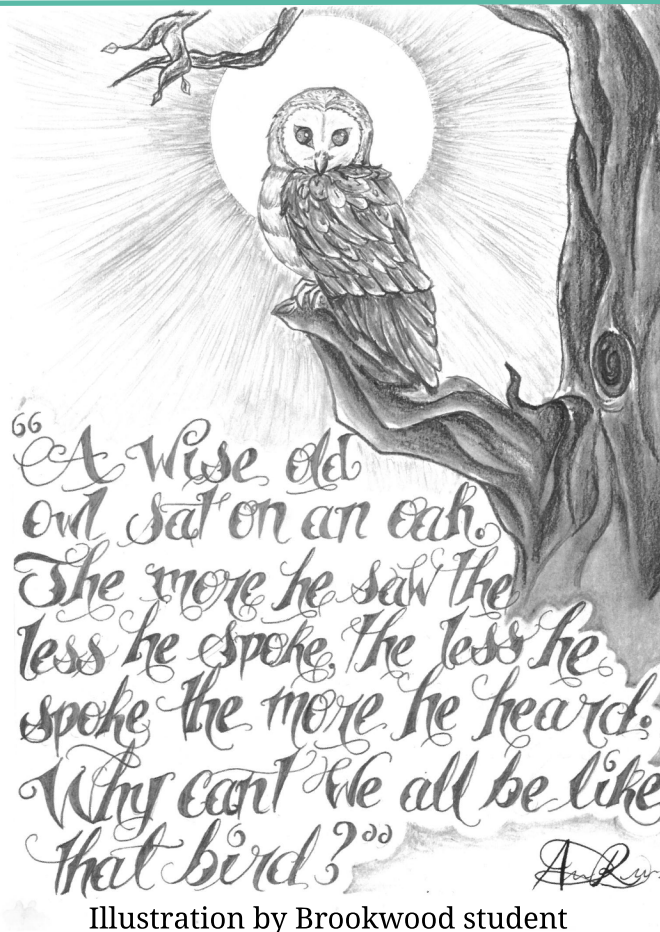 “A Wise old
owl sat on an oak.
The more he saw the
less he spoke, The less he
spoke the more he heard.
Why can't We all be like
that bird?”
Illustration by Brookwood student